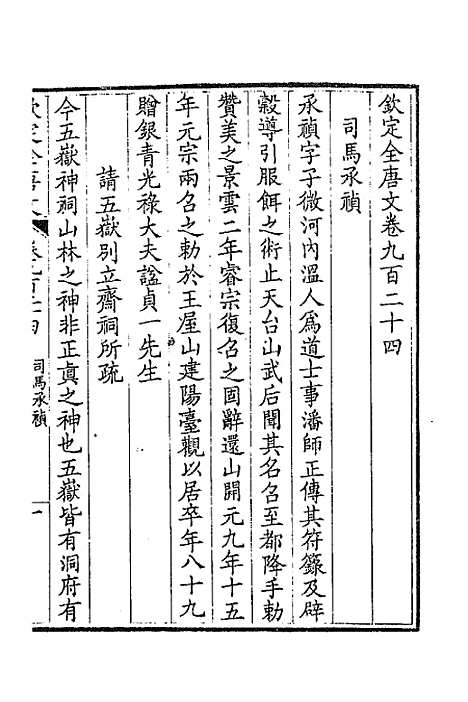 欽定全唐文卷九百二十四
司馬承禎
承禎字子微河內溫人爲道士事潘師正傳其符籙及辟
穀導引服餌之術止天台山武后聞其名召至都降手勅
贊美之景雲二年睿宗復召之固辭還山開元九年十五
年元宗兩召之勅於王屋山建陽臺觀以居卒年八十九
贈銀青光祿大夫諡貞一先生
請五嶽別立齋祠所疏
今五嶽神祠山林之神非正真之神也五嶽皆有洞府有
欽定全唐文 卷九百二十四 司馬承禎 一